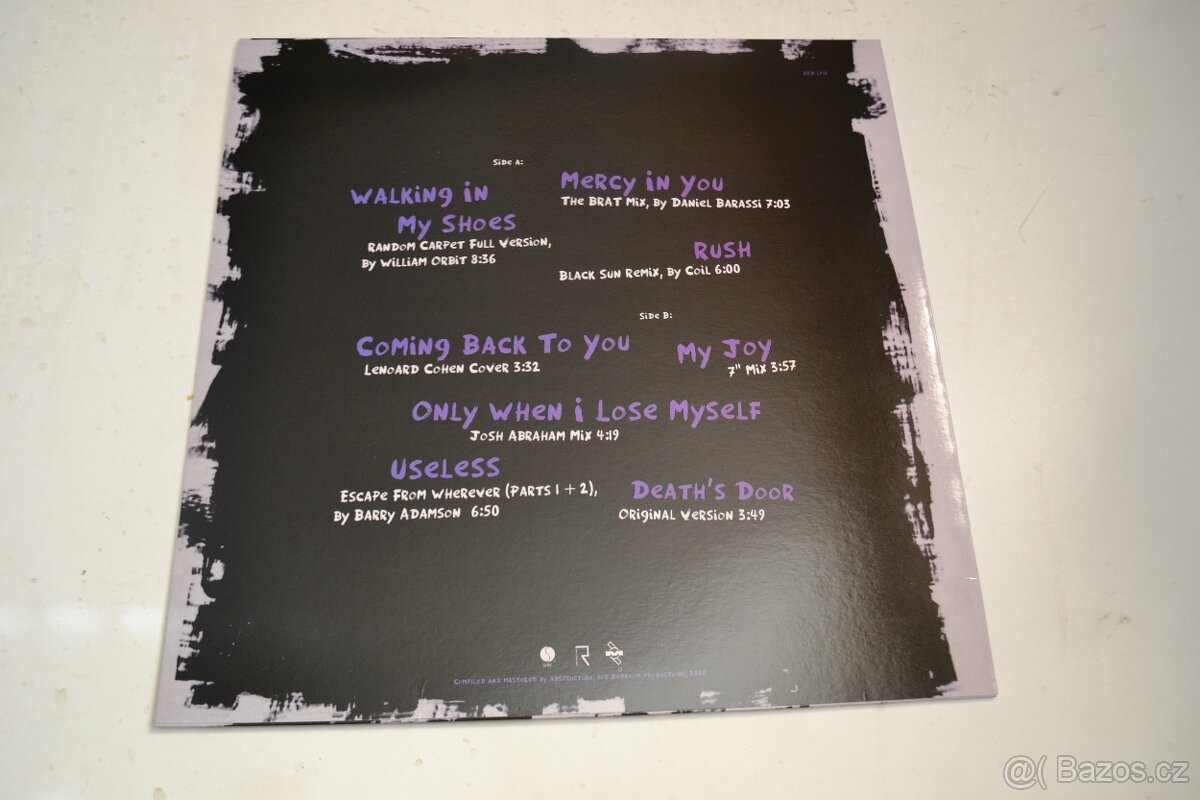 Side A:
Walking in
My Shoes
Random Carpet Full Version,
by William Orbit 8:36
Mercy in You
The BRAT Mix, by Daniel Barassi 7:03
Rush
Black Sun Remix, by Coil 6:00
Side B:
Coming Back To You
Lenoard Cohen Cover 3:32
My Joy
7" Mix 3:57
Only When I Lose Myself
Josh Abraham Mix 4:19
Useless
Escape From Wherever (Parts 1 + 2),
by Barry Adamson 6:50
Death's Door
Original Version 3:49
Compiled and mastered by Abstructure, for Bedroom Productions, 2010
@( Bazos.cz